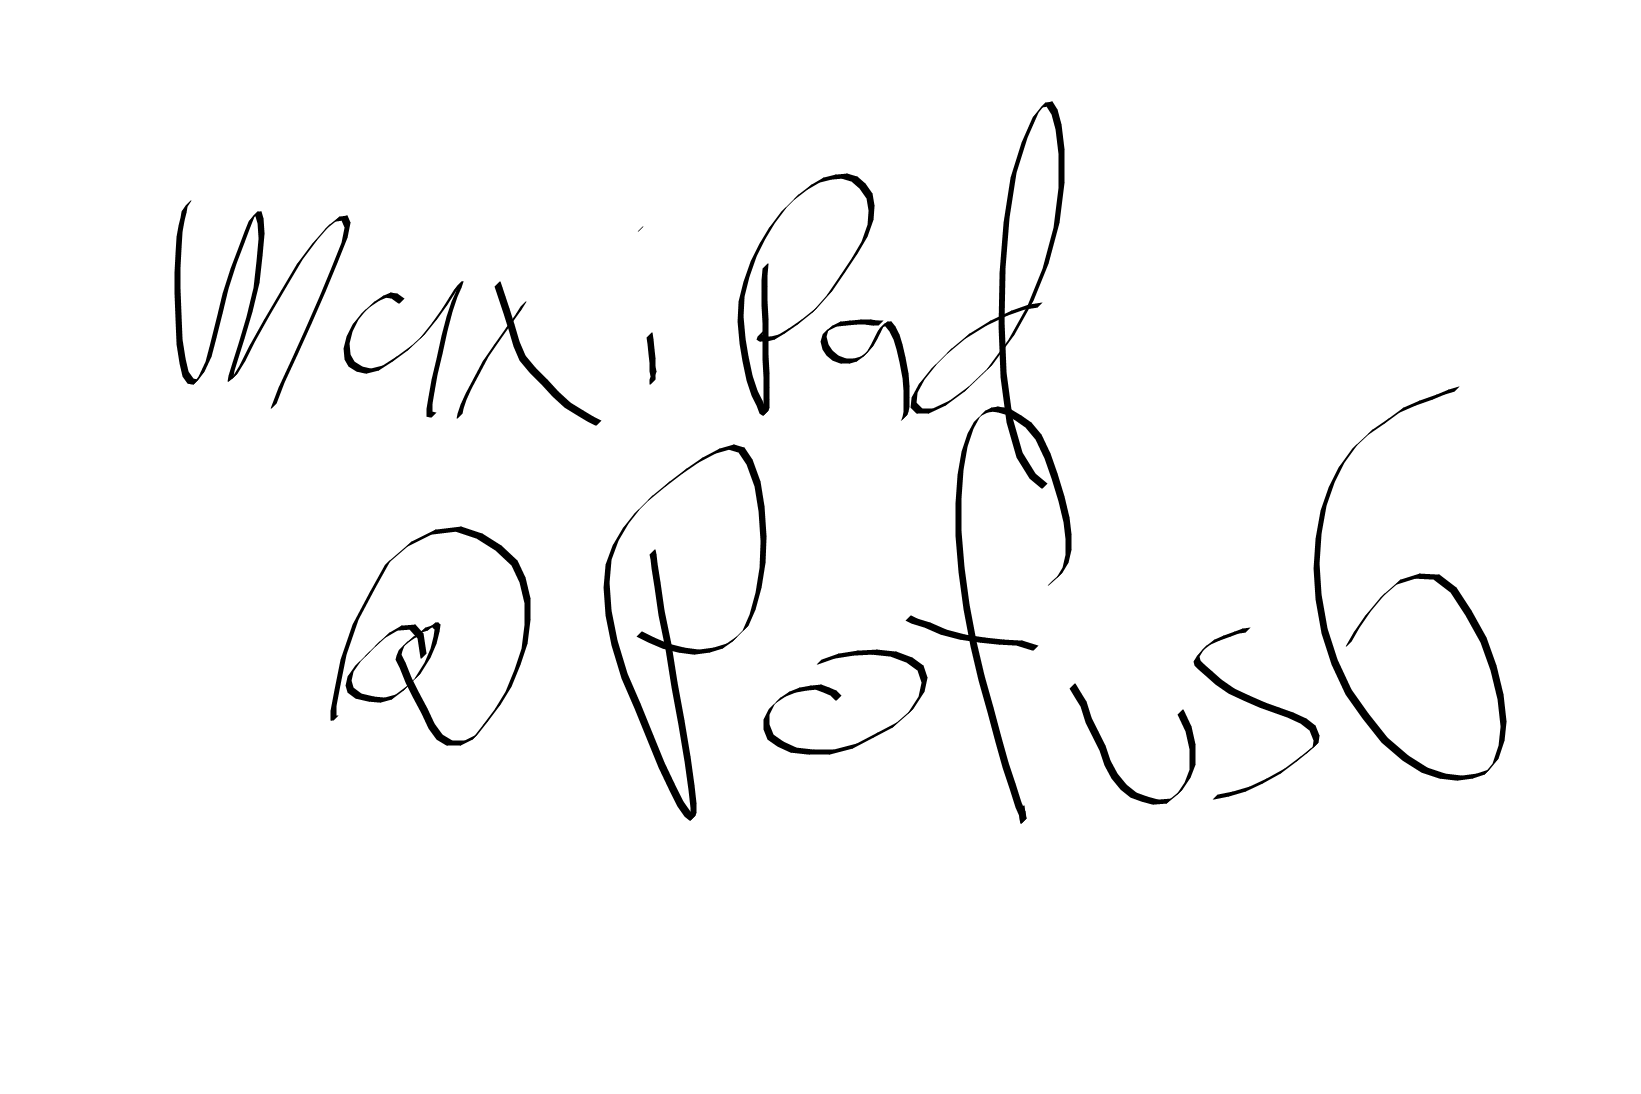 Maxi Pad
@Pofus6